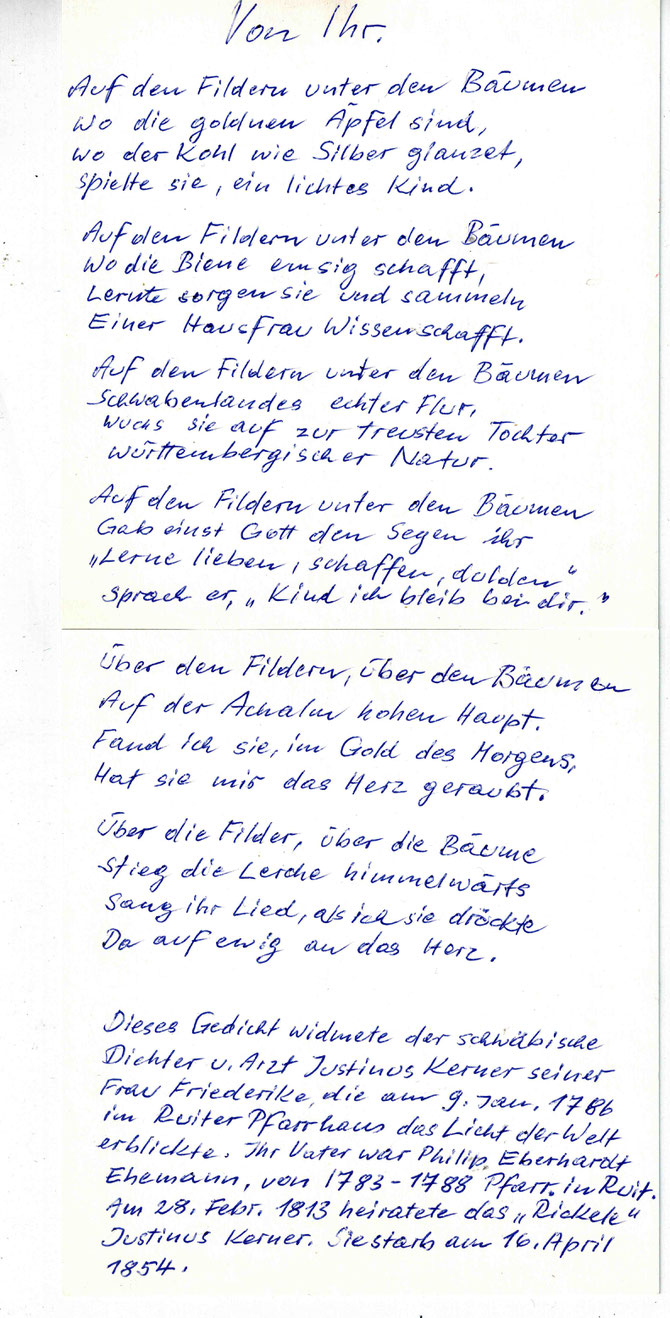 Von Ihr.
Auf den Fildern unter den Bäumen
wo die goldnen Äpfel sind,
wo der Kohl wie Silber glänzet,
spielte sie, ein lichtes Kind.
Auf den Fildern unter den Bäumen
wo die Biene emsig schafft,
Lernte sorgen sie und sammeln
Einer Hausfrau Wissenschafft.
Auf den Fildern unter den Bäumen
Schwabenlandes echter Flur,
wuchs sie auf zur treusten Tochter
württembergischer Natur.
Auf den Fildern unter den Bäumen
Gab einst Gott den Segen ihr
„Lerne lieben, schaffen, dulden"
sprach er, „Kind ich bleib bei dir."
Über den Fildern, über den Bäumen
Auf der Achalm hohen Haupt.
Fand ich sie, im Gold des Morgens,
Hat sie mir das Herz geraubt.
Über die Filder, über die Bäume
Stieg die Lerche himmelwärts
Sang ihr Lied, als ich sie drückte
Da auf ewig an das Herz.
Dieses Gedicht widmete der schwäbische
Dichter u. Arzt Justinus Kerner seiner
Frau Friederike, die am 9. Jan. 1786
im Ruiter Pfarrhaus das Licht der Welt
erblickte. Ihr Vater war Philip Eberhardt
Ehemann, von 1783-1788 Pfarr. in Ruit.
Am 28. Febr. 1813 heiratete das „Rickele"
Justinus Kerner. Sie starb am 16. April
1854.